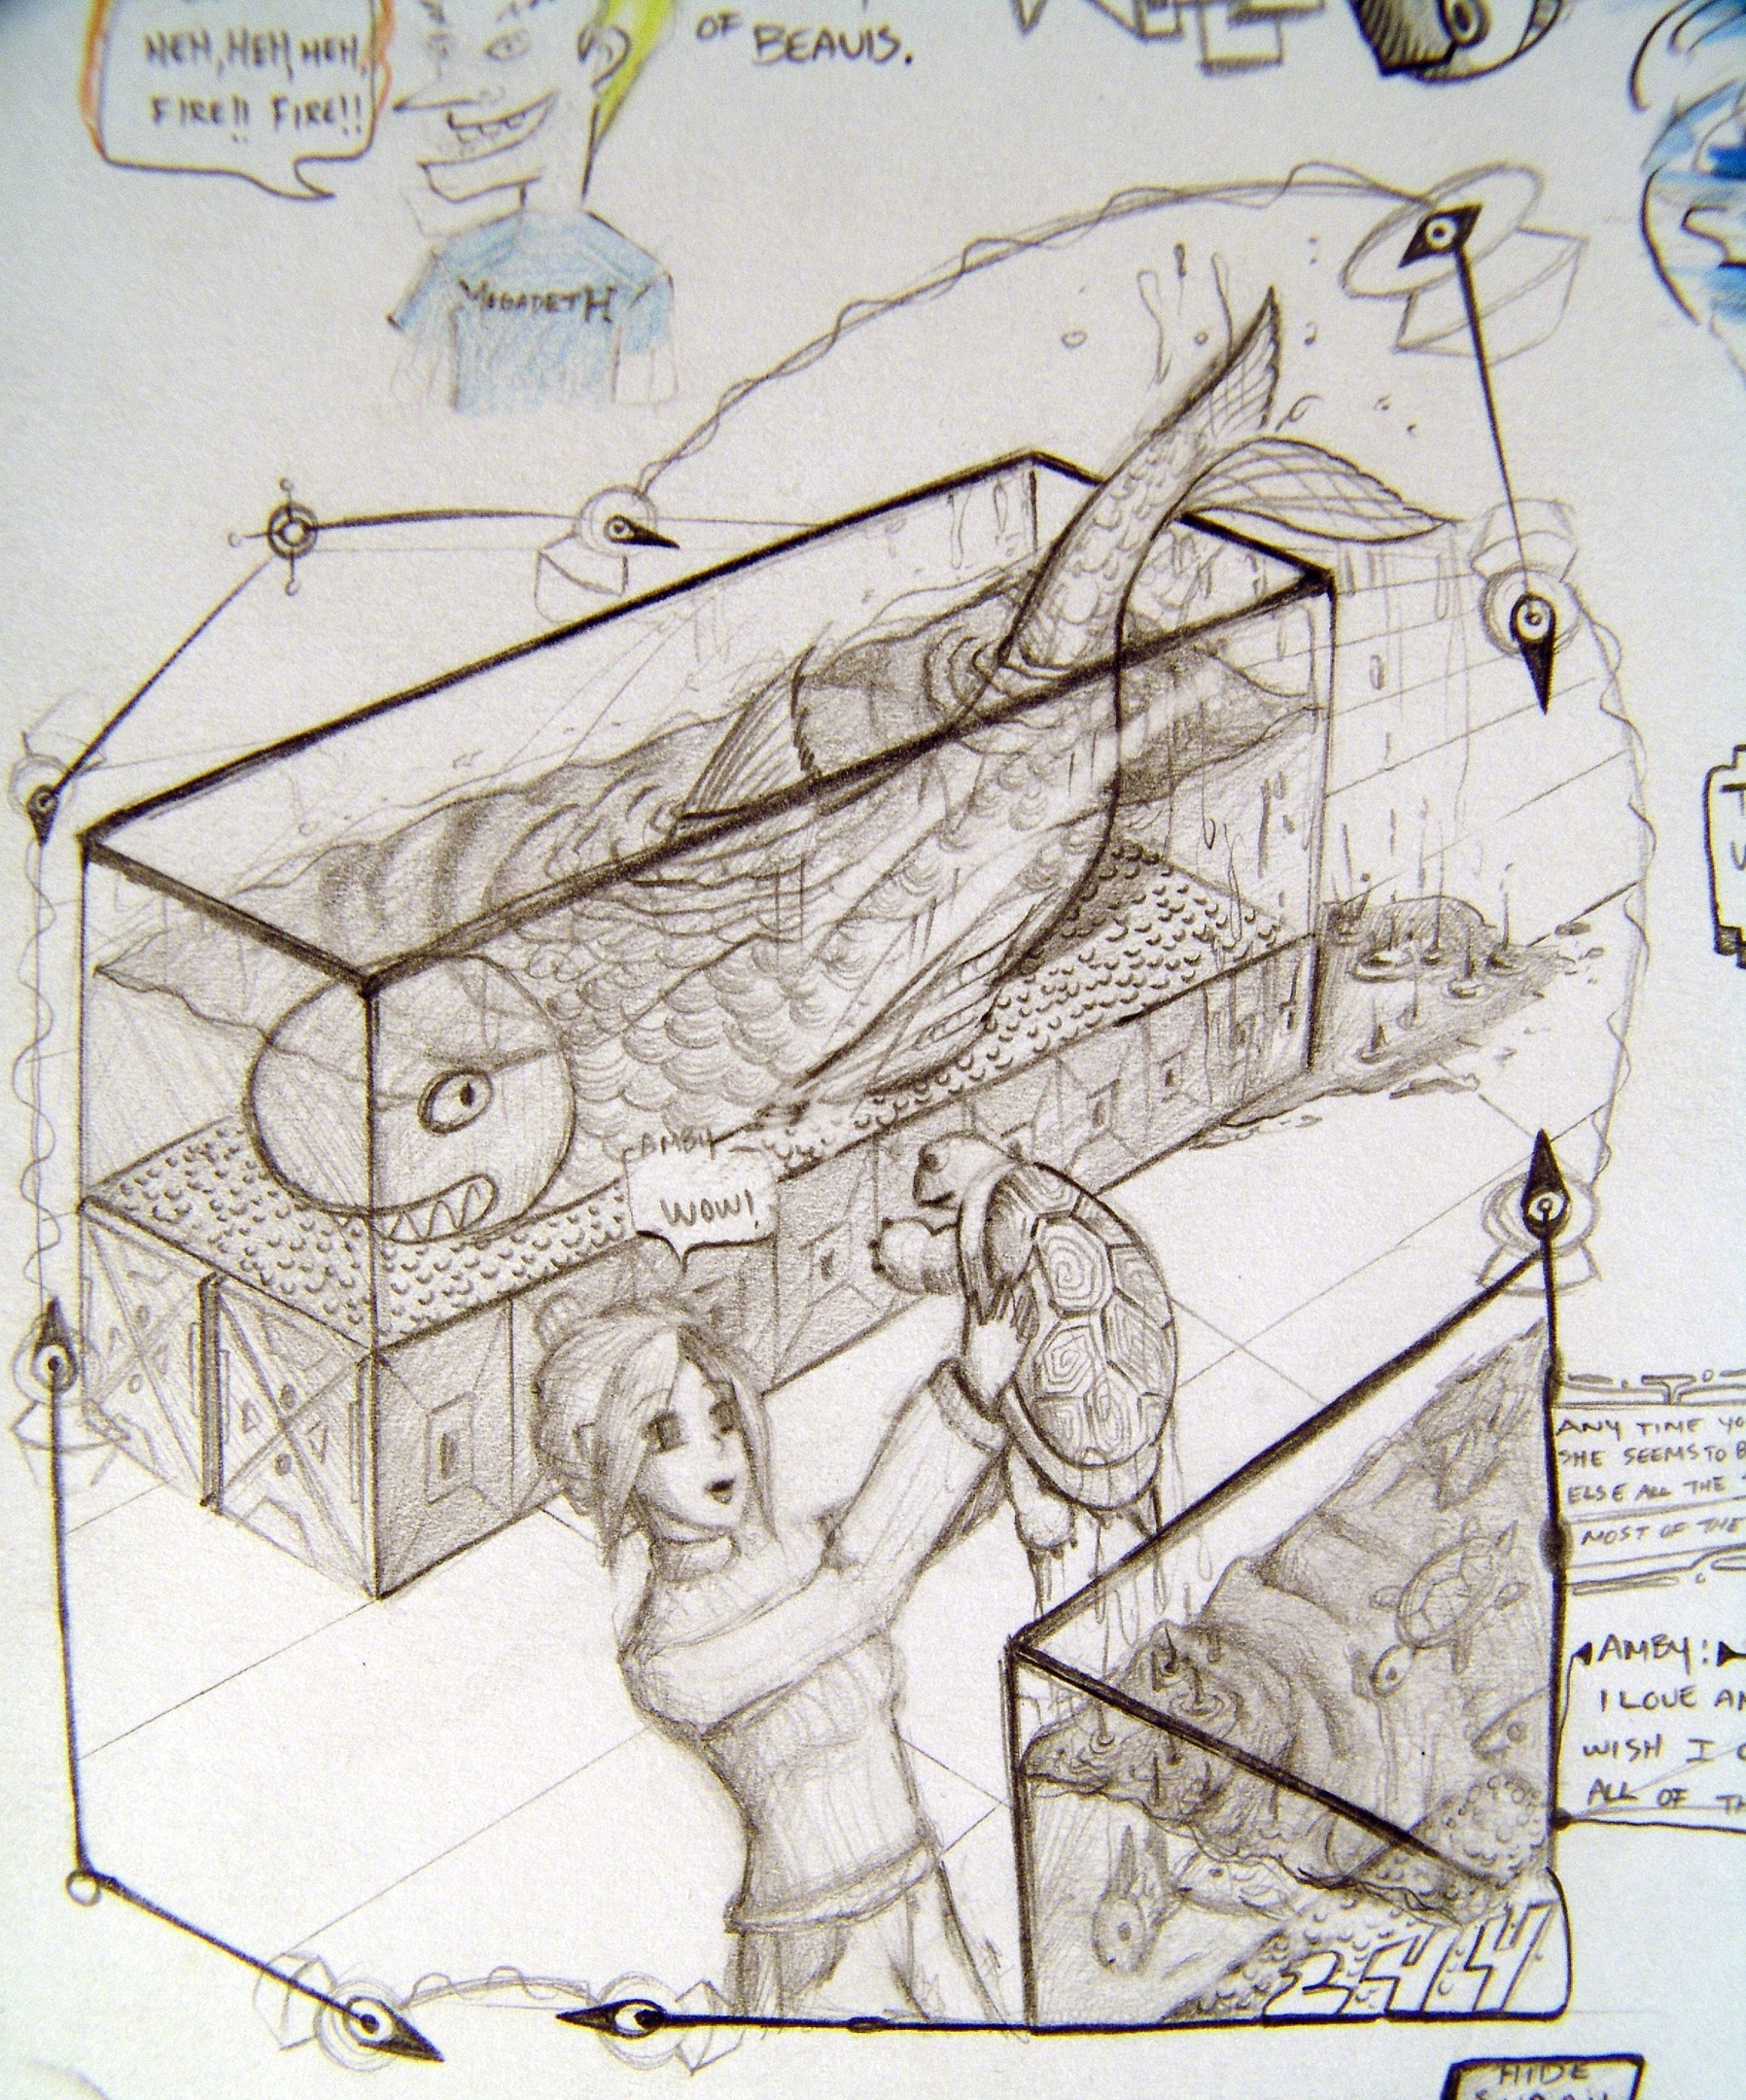 HEH, HEH, HEH,
FIRE!! FIRE!!
OF BEAVIS.
MEGADETH
AMBY
WOW!
ANY TIME YO
SHE SEEMS TO B
ELSE ALL THE
MOST OF THE
AMBY:
I LOVE AN
WISH I C
ALL OF TH
HIDE